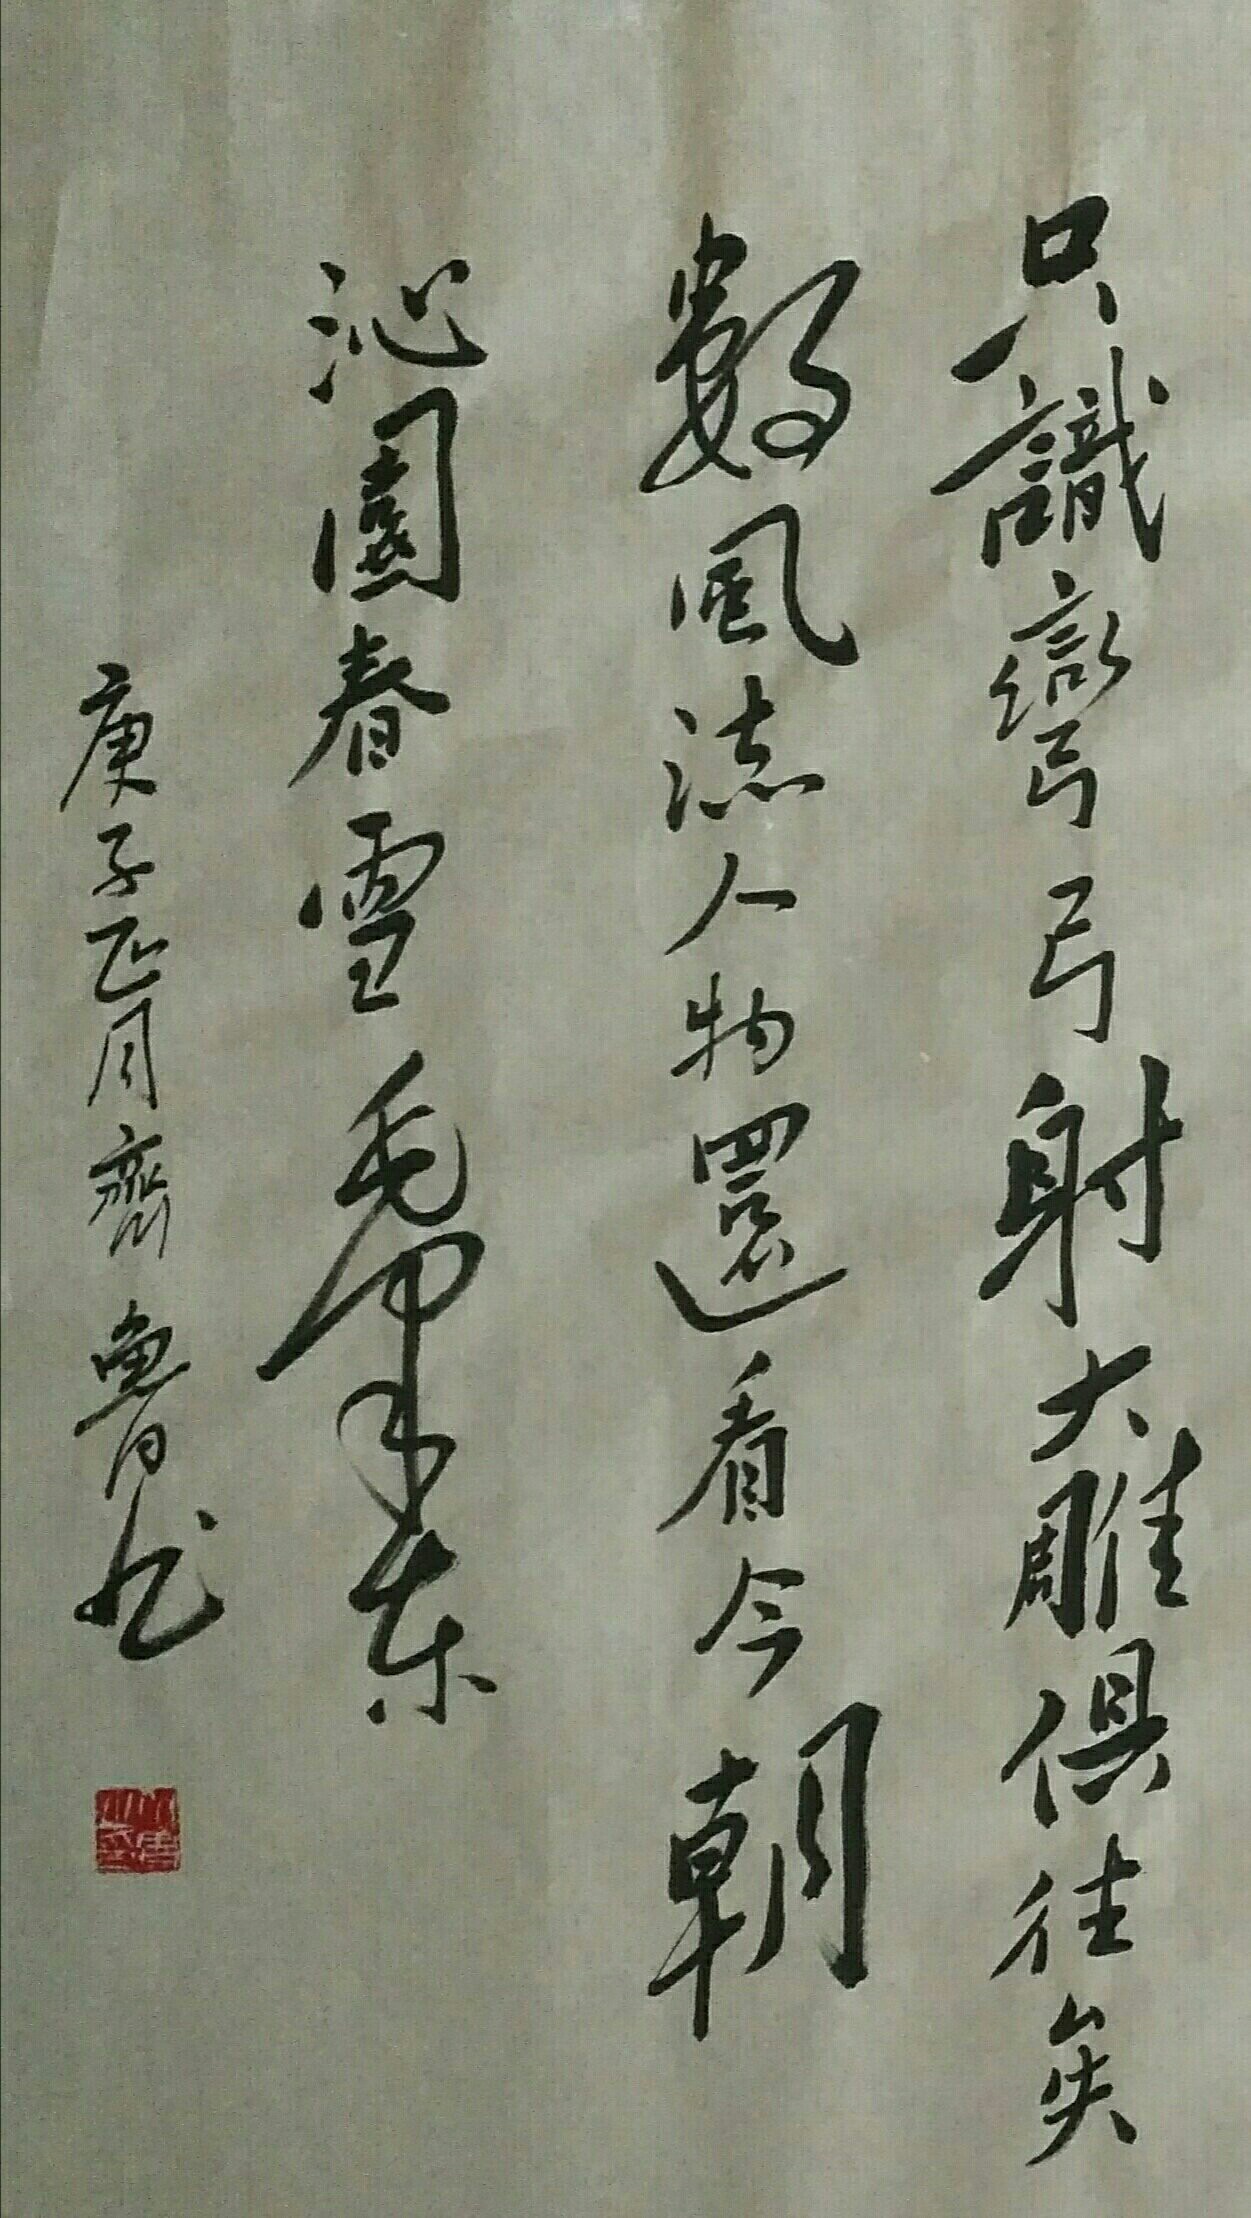 只識彎弓弓射大雕俱往矣
數風流人物還看今朝
沁園春雪毛澤东
庚子正月齊魯书